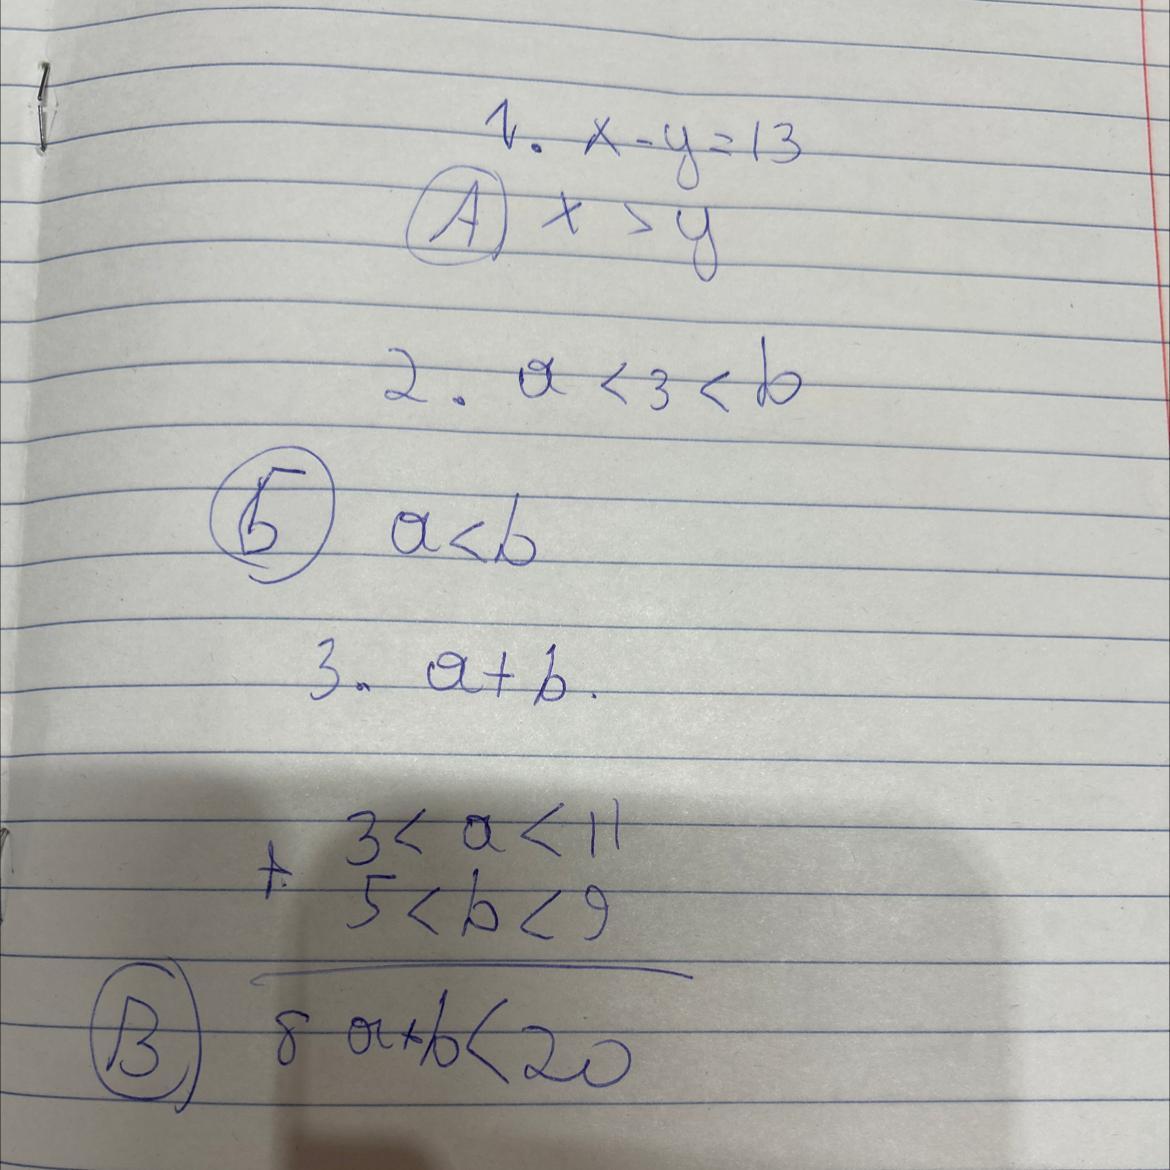 1. x - y = 13
А x > y
2. a < 3 < b
Б a < b
3. a + b.
3 < a < 11
+
5 < b < 9
В 8 a + b < 20